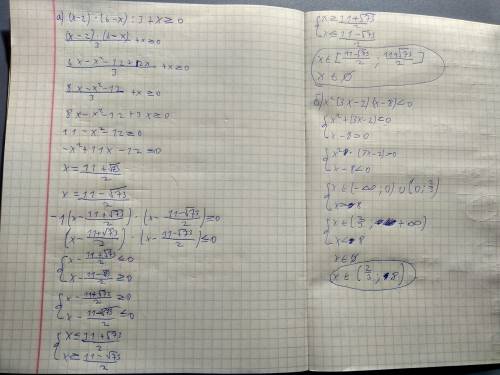 а) (x-2)·(6-x):3+x≥0
(x-2)·(6-x)/3 +x≥0
6x-x²-12+2x/3 +x≥0
8x-x²-12/3 +x≥0
8x-x²-12+3x≥0
11-x²-12≥0
-x²+11x-12≥0
x=11+√73/2
x=11-√73/2
-1(x-11+√73/2)·(x-11-√73/2)≥0
(x-11+√73/2)·(x-11-√73/2)≤0
{x-11+√73/2≤0
x-11-√73/2≥0
{x-11+√73/2≥0
x-11-√73/2≤0
{x≤11+√73/2
x≥11-√73/2
{x≥11+√73/2
x≤11-√73/2
x∈[11-√73/2; 11+√73/2]
x∈∅
б) x²(3x-2)(x-8)<0
{x²+(3x-2)<0
x-8>0
{x²·(3x-2)>0
x-8<0
{x∈(-∞;0)∪(0;2/3)
x>8
{x∈(2/3;+∞)
x<8
x∈∅
x∈(2/3;8)